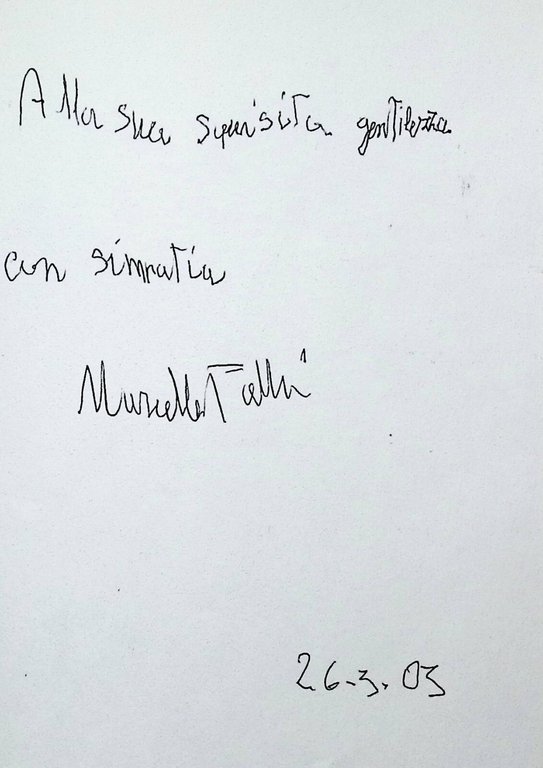 Alla sua squisita gentilezza
con simpatia
Marcello
26-3.03